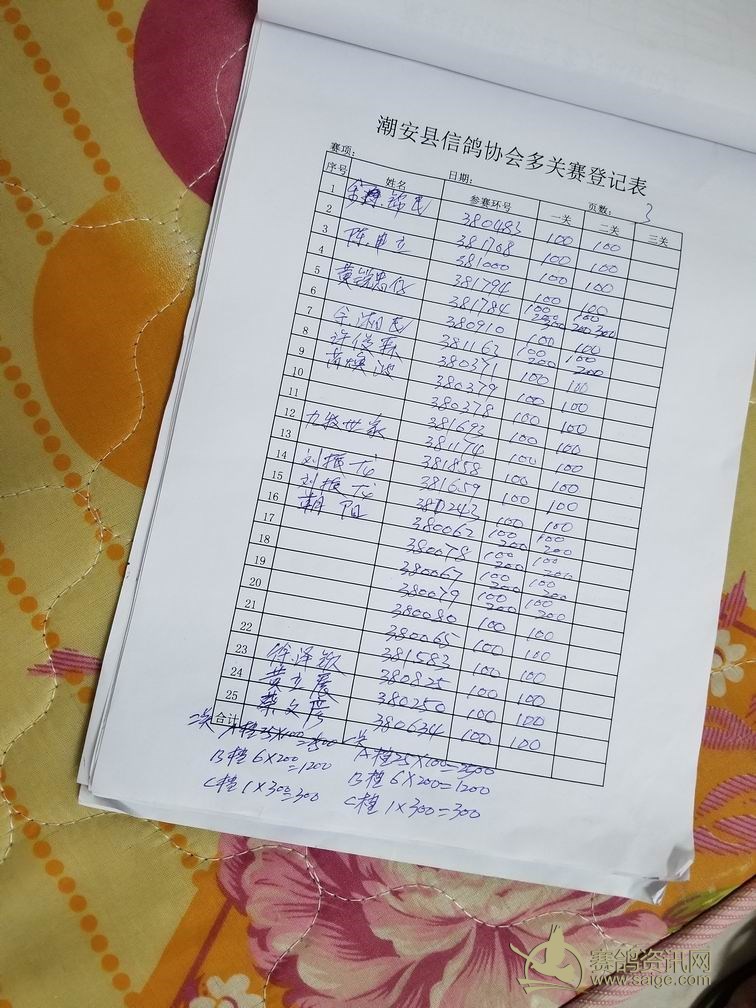 潮安县信鸽协会多关赛登记表
赛项: 日期: 页数: 3
序号 姓名 参赛环号 一关 二关 三关
1 锦民 380483 100 100
2 381768 100 100
3 陈 381000 100 100
4 381794 100 100
5 黄 381784 100 200 300 100 200 300
6 380910 100 100
7 381163 100 200 100 200
8 许俊 380371 100 100
9 黄 380379 100 100
10 380378 100 100
11 381693 100 100
12 世家 381174 100 100
13 381858 100 100
14 刘振 381659 100 100
15 刘振 380243 100 100
16 朝阳 380062 100 200 100 200
17 380078 100 200 100 200
18 380067 100 200 100 200
19 380079 100 200 100 200
20 380080 100 100
21 380065 100 100
22 381583 100 100
23 380825 100 100
24 黄 380250 100 100
25 蔡文 380634 100 100
合计
二关 A档25X100=2500 一关 A档25X100=2500
B档6X200=1200 B档6X200=1200
C档1X300=300 C档1X300=300
赛鸽资讯网
www.saige.com